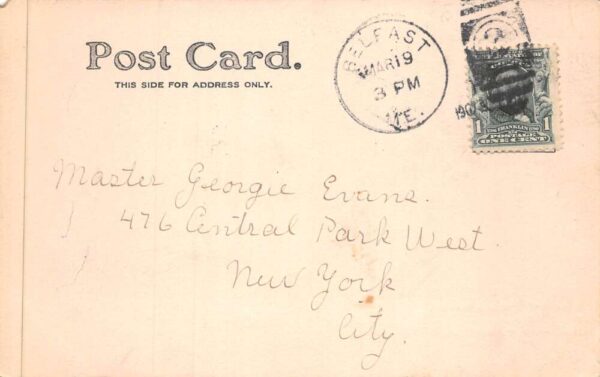 Post Card.
THIS SIDE FOR ADDRESS ONLY.
BELFAST
MAR 19
3 PM
ME.
1 FRANKLIN 1
POSTAGE
ONE CENT
Master Georgie Evans.
476 Central Park West.
New York
City.